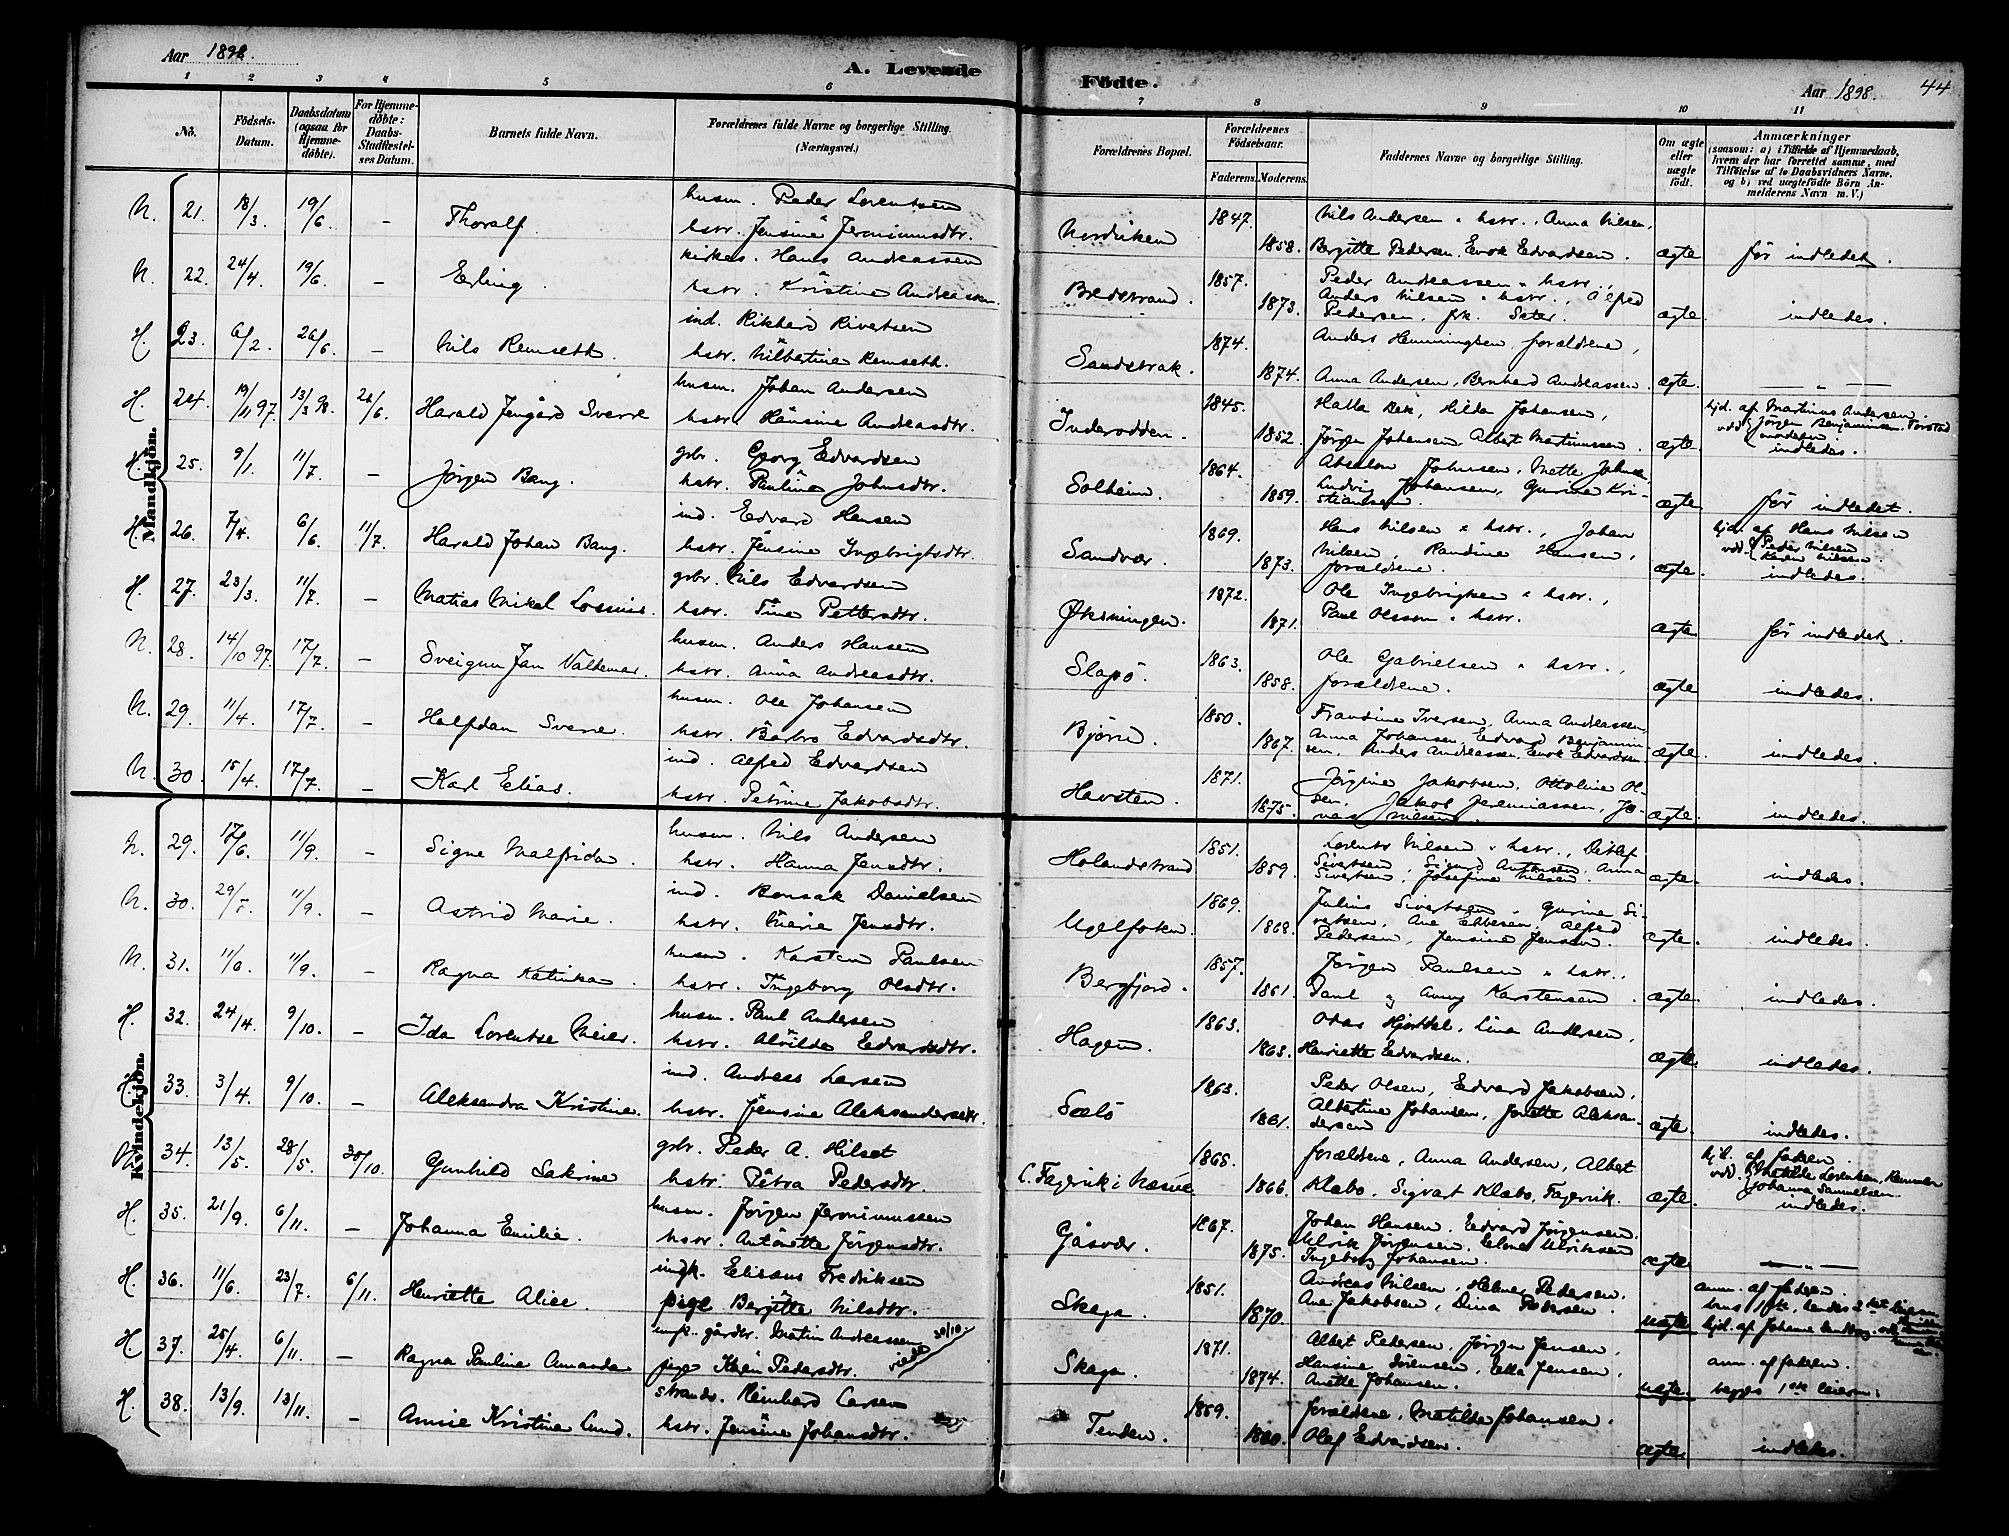 Aar 1898.
A. Levende
Fødte.
Aar 1898.
44
1 2 3 4 5 6 7 8 9 10 11
No.
Fødsels-Datum.
Daabsdatum (ogsaa for Hjemme-døbte).
For Hjemme-døbte: Daabs-Stadfæstel-ses Datum.
Barnets fulde Navn.
Forældrenes fulde Navne og borgerlige Stilling. (Næringsvei.)
Forældrenes Bopæl.
Forældrenes Fødselsaar.
Faderens. Moderens.
Faddernes Navne og borgerlige Stilling.
Om ægte eller uægte født.
Anmærkninger
(saasom: a) i Tilfælde af Hjemmedaab, hvem der har forrettet samme, med Tilføielse af to Daabsvidners Navne. og b) ved uægtefødte Børn An-melderens Navn m. V.)
Mandkjøn.
N. 21. 18/3. 19/6. – Thoralf. husm. Peder Lorentsen
hstr. Jensine Jeronimusdtr. Nordviken 1847. 1858. Nils Andersen " hstr., Anna Nilsen,
Bergitte Pedersen. Enok Edvardsen. ægte før indledet.
N. 22. 24/4. 19/6. – Erling. kirkes. Hans Andreassen
hstr. Kristine Andreassen. Bredstrand. 1857. 1873. Peder Andreassen " hstr.,
Anders Nilsen " hstr., Alfred
Pedersen, frk. Sæter. ægte indledes.
H. 23. 6/2. 26/6. – Nils Remseth. ind. Rikhard Sivertsen
hstr. Nilbertine Remseth. Sandstrak. 1874. 1874. Anders Henningsen, forældrene,
Anna Andersen, Bernhard Andreassen. ægte. — " —
H. 24. 19/11 97. 13/3 98. 26/6. Harald Jengård Sverre husm. Johan Andersen
hstr. Hansine Andreasdtr. Inderodden. 1845. 1852. Hatla Bek, Hilda Johansen,
Jørgen Johansen, Albert Martinussen. ægte. hjd. af Martinus Andersen.
vdd. Jørgen Benjaminsen. Forstad
moderen
indledes.
H. 25. 9/1. 11/7. – Jørgen Bang. gbr. Georg Edvardsen
hstr. Pauline Johnsdtr. Solheim. 1864. 1859. Absalon Johnsen. Mette Johnsen,
Ludvig Johansen, Gurine Kri-
stiansen. ægte. før indledet.
H. 26. 7/4. 6/6. 11/7. Harald Johan Bang. ind. Edvard Hansen
hstr. Jensine Ingebrigtsdtr. Sandvær. 1869. 1873. Hans Nilsen " hstr., Johan
Nilsen, Randine Hansen,
forældrene. ægte. hjd. af Hans Nilsen
vdd. Peder Nilsen
Karen Nilsen.
indledes.
H. 27. 23/3. 11/7. – Matias Mikal Losnius. gbr. Nils Edvardsen
hstr. Tina Pettersdtr. Øksningen. 1872. 1871. Ole Ingebrigtsen " hstr.,
Paul Olsson " hstr. ægte før indledet.
N. 28. 14/10 97. 17/7. – Sveigun Jan Valdemar. husm. Anders Hansen
hstr. Anna Andreasdtr. Slapø. 1863. 1858. Ole Gabrielsen " hstr.,
forældrene. ægte indledes.
N. 29. 11/4. 17/7. – Halfdan Sverre. husm. Ole Johansen
hstr. Barbro Edvardsdtr. Bjørn. 1850. 1867. Frantsine Iversen, Anna Andreassen,
Anna Johansen, Edvard Benjamin-
sen, Anders Andreassen. Enok Edvardsen ægte. indledes.
N. 30. 15/4. 17/7. – Karl Elias. ind. Alfred Edvardsen
hstr. Petrine Jakobsdtr. Havsten. 1871. 1875. Jørgine Jakobsen, Ottoline Ol-
sen. Jakob Jeremiassen, Jo-
nas Nilsen. ægte. indledes.
Kvindekjøn.
N. 29. 17/6. 11/9. – Signe Malfrida. husm. Nils Andersen
hstr. Hanna Jensdtr. Holandstrand 1851. 1859. Lorents Nilsen " hstr., Ditlef
Sivertsen, Sigurd Antonsen, Anna
Sivertsen, Josefine Nilsen. ægte. indledes.
N. 30. 29/7. 11/9. – Astrid Marie. ind. Bonsak Danielsen
hstr. Marie Jensdtr. Ugelfoten. 1869. 1868. Julius Sivertsen, Gurine Si-
vertsen, Ane Ebbesen, Alfred
Pedersen, Jensine Jensen. ægte. indledes.
N. 31. 11/6. 11/9. – Ragna Katinka. husm. Karsten Paulsen
hstr. Ingeborg Olsdtr. Bergfjord. 1857. 1861. Jørgen Paulsen " hstr.,
Paul og Anny Karstensen. ægte. indledes.
H. 32. 24/4. 9/10. – Ida Lorentse Meier. husm. Paul Andersen
hstr. Alvilde Edvardsdtr. Hagen. 1863. 1863. Odas Hjortdal, Lina Andersen,
Henriette Edvardsen. ægte. indledes.
H. 33. 3/4. 9/10. – Aleksandra Kristine. ind. Andreas Larsen
hstr. Jensine Aleksandersdtr. Sælø 1863. 1861. Peder Olsen, Edvard Jakobsen,
Albertine Johansen, Jonette Aleksan-
dersen ægte. indledes.
N. 34. 13/5. 28/5. 30/10. Gunhild Sakrine gbr. Peder A. Hilset
hstr. Petra Pedersdtr. Fagervik i Næsne 1865. 1866. forældrene, Anna Andersen, Albert
Klæbo, Sigvart Klæbo, Fagervik. ægte. hjd. af faderen.
vdd. Matilde Lorentsen, Remmen
Johanna Samuelsen.
indledes.
H. 35. 21/9. 6/11. – Johanna Emilie. husm. Jørgen Jeronimussen
hstr. Antonette Jørgensdtr. Gåsvær. 1867. 1875. Johan Hansen. Edvard Jørgensen.
Ulrik Jørgensen. Elene Ulriksen
Ingeborg Johansen. ægte — " —
H. 36. 11/6. 23/7. 6/11. Henriette Alice. ungk. Elisæus Fredriksen
pige Bergitte Nilsdtr. Skaga. 1851. 1870. Andreas Nilsen, Helmer Pedersen,
Ane Jakobsen, Dina Pedersen. uægte anm. af faderen.
hans 1ste, hendes 2det leierm.
hjd. af Johanne
H. 37. 25/4. 6/11. – Ragna Pauline Amanda ungk. gårdbr. Martin Andreassen
pige Karen Pedersdtr. viede 30/10. Skaga. 1871. 1874. Albert Pedersen, Jørgen Jensen,
Hansine Sørensen, Ella Jensen,
Anette Johansen. uægte. anm. af faderen.
begges 1ste leierm.
H. 38. 13/9. 13/11. – Amsie Kristine Lund. strands. Reinhard Larsen
hstr. Jensine Johansdtr. Tenden. 1859. 1860. forældrene, Matilde Johansen,
Olaf Edvardsen. ægte. indledes.